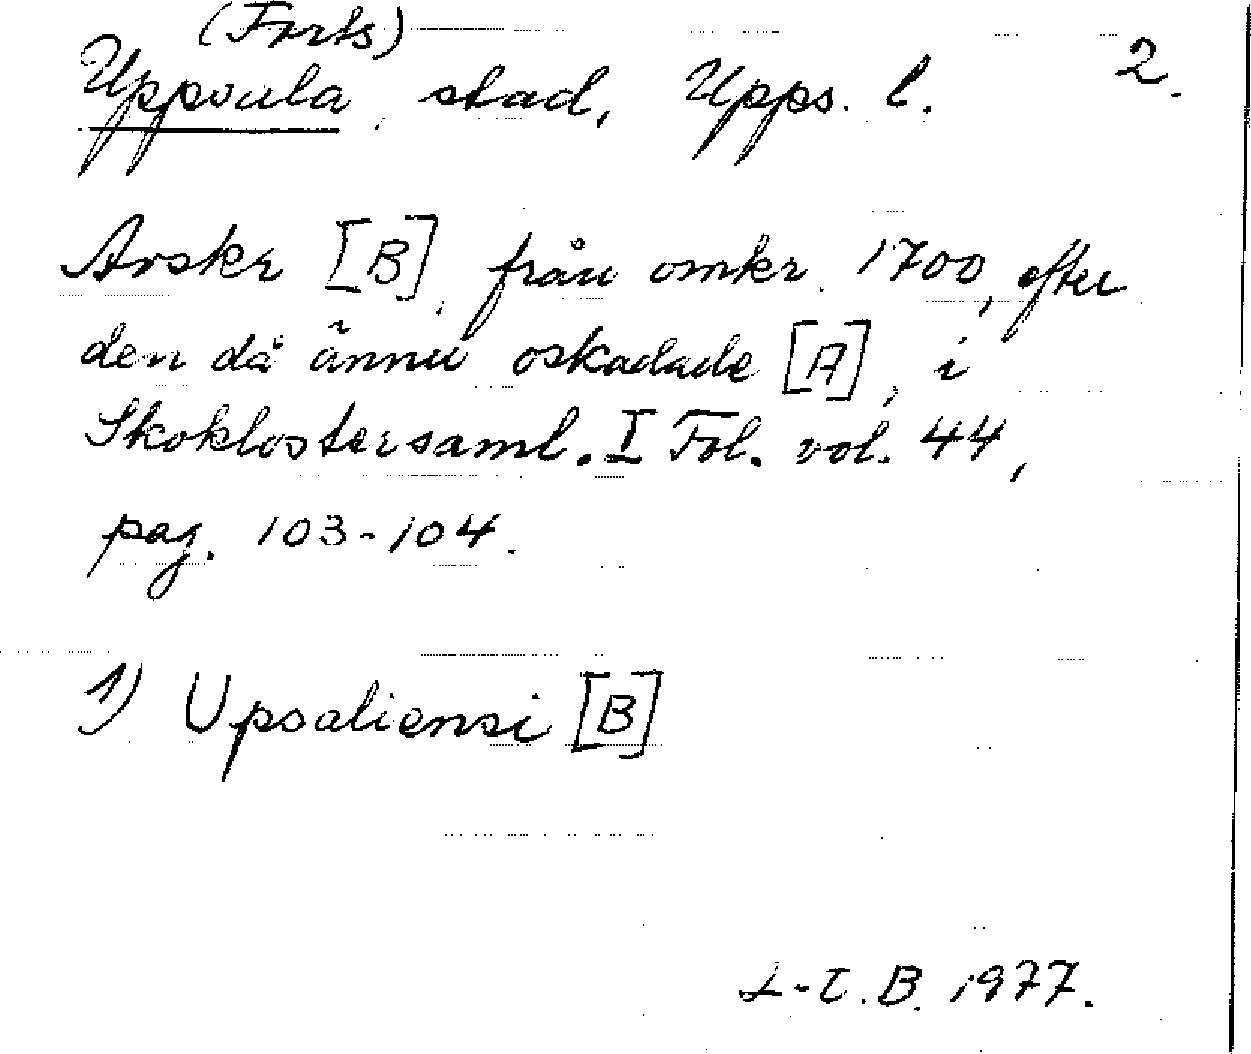 (Forts)
Uppsala stad, Upps. l. 2.
Avskr [B] från omkr. 1700, efter
den då ännu oskadade [A], i
Skoklostersaml. I Fol. vol. 44,
pag. 103-104.
1) Upsaliensi [B]
L-E.B. 1977.